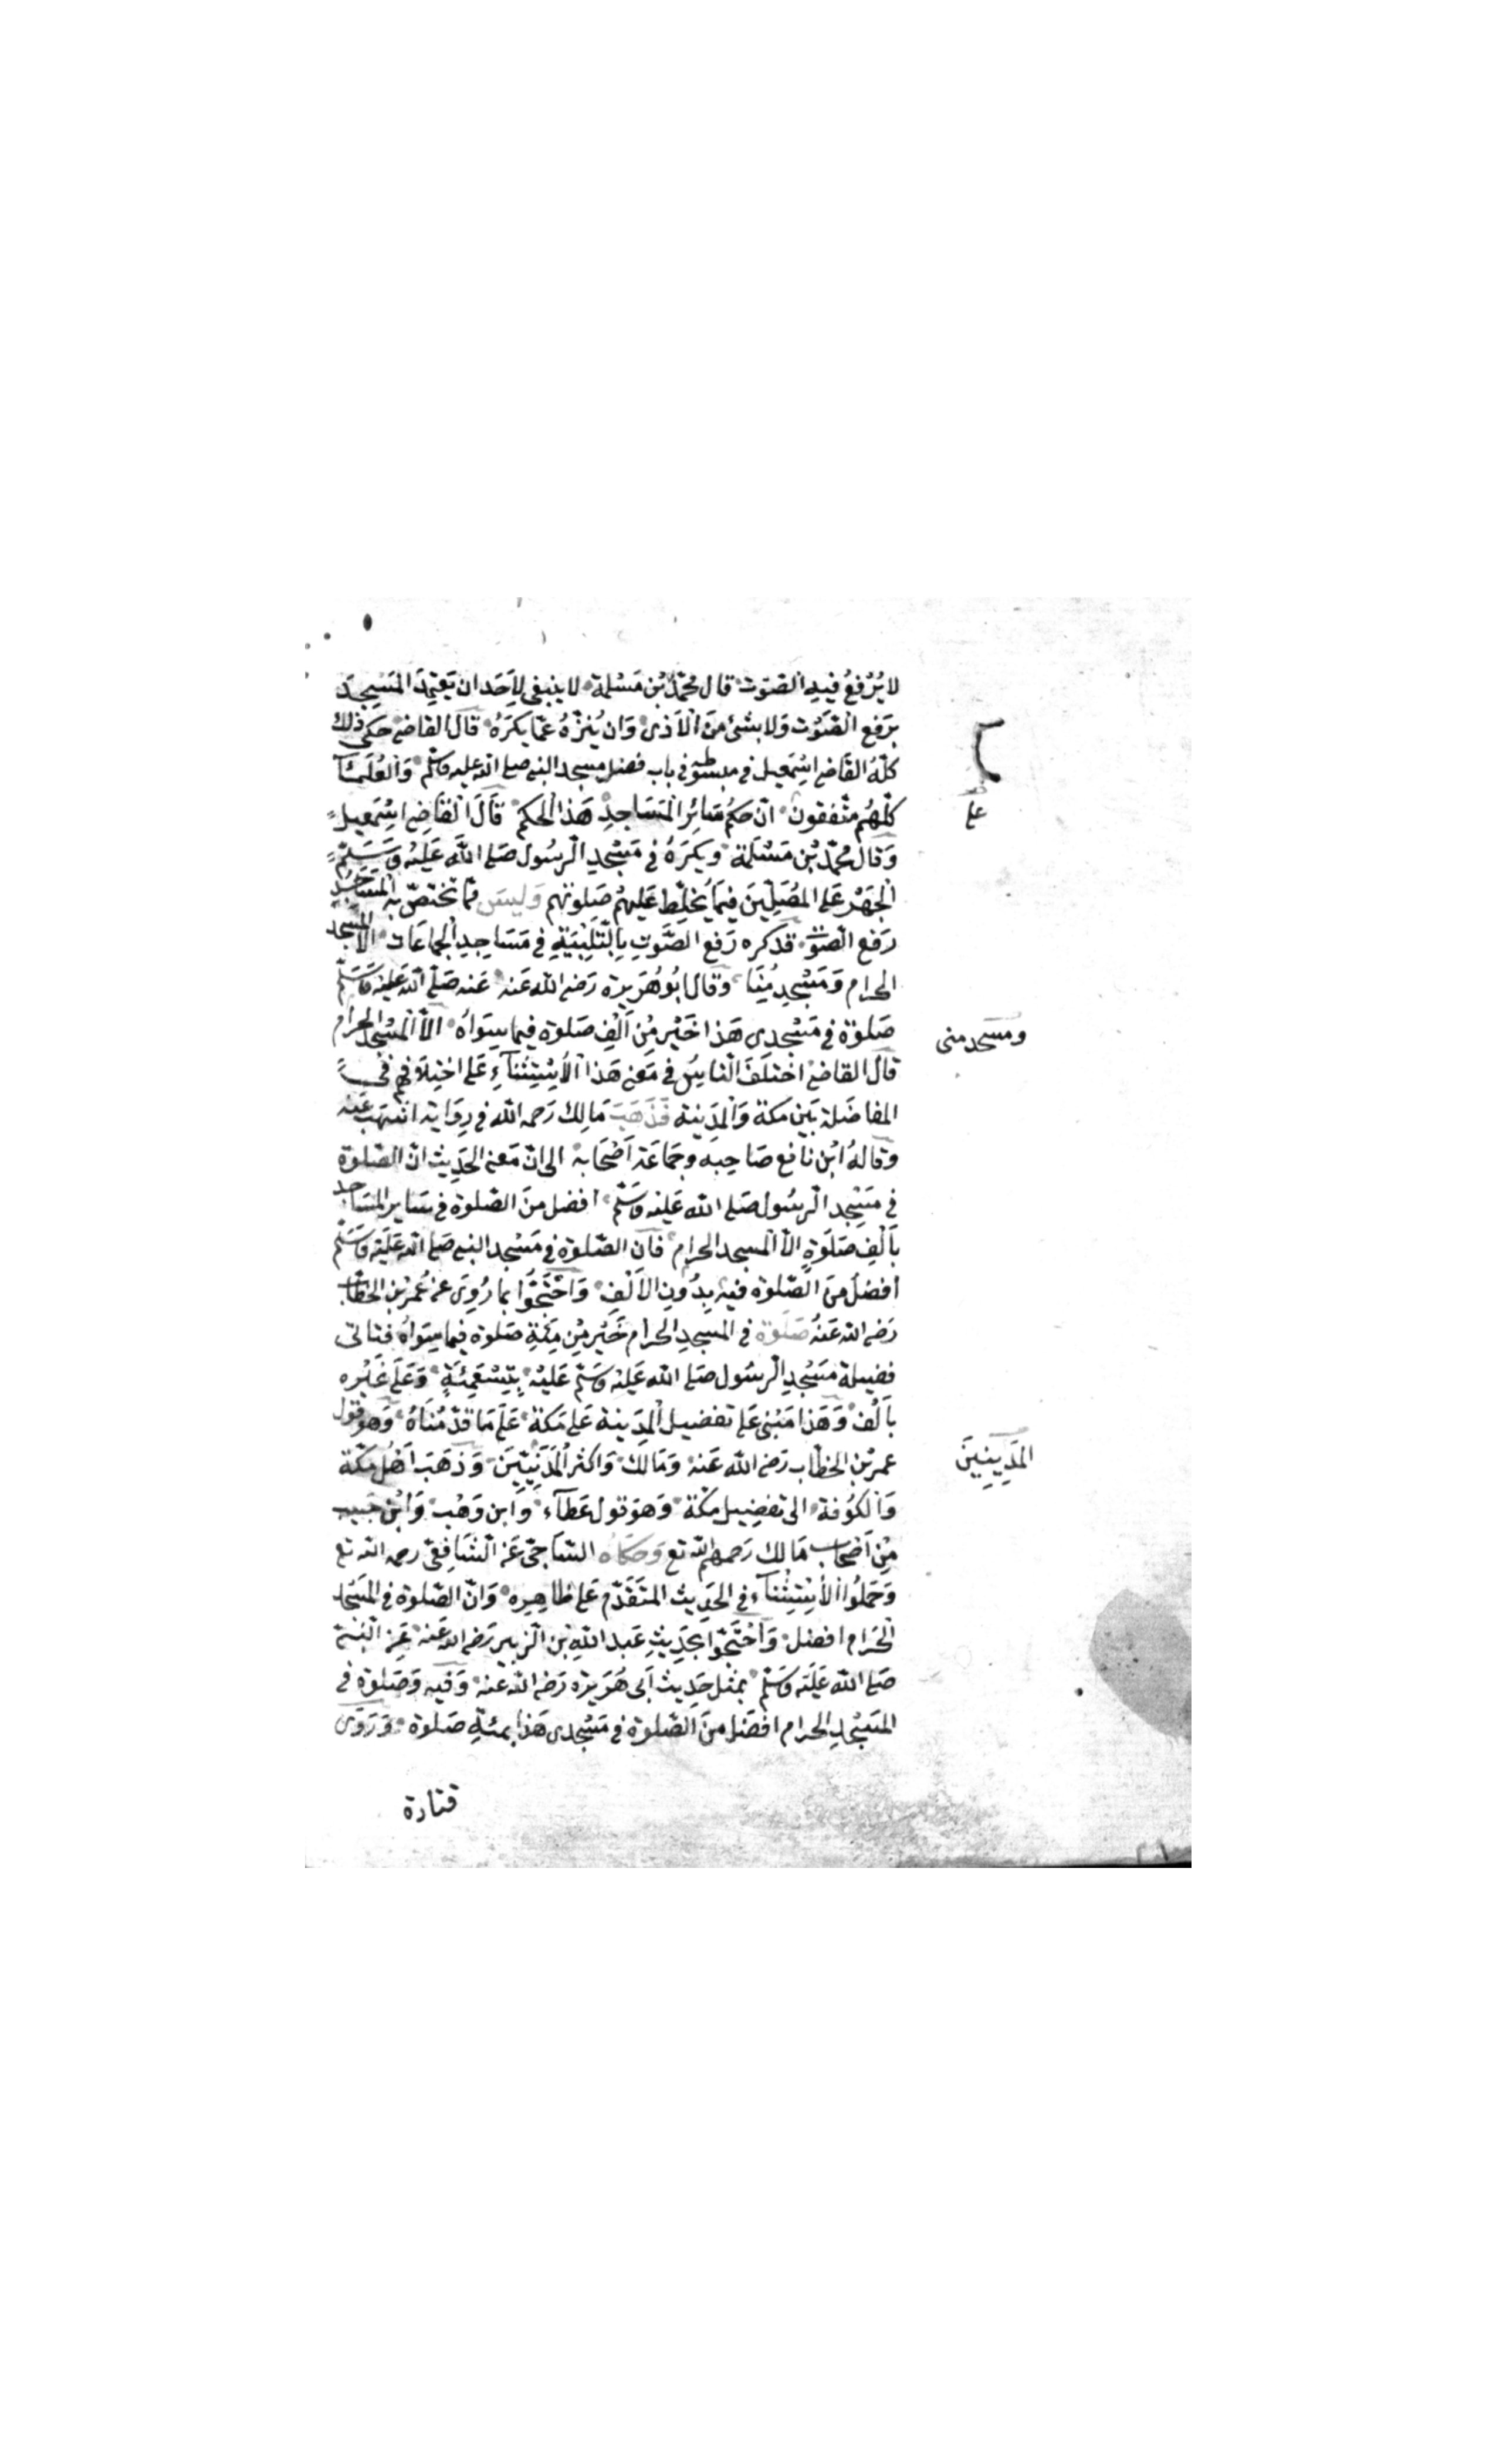 لا يُرْفَعُ فيهِ الصّوت قال محمّدُ بْن مَسْلمة لا ينبغى لاَحَد ان يَعْتمِدَ المَسْجِدَ
برَفع الصَّوْت وَلا بشئ منَ الْاَذى وَان يُنزّهُ عمّا يكرَهُ قالَ القاضى حَكى ذلك
كلّهُ القَاضى اسْمَعيل فى مبسُوطه فى باب فضل مَسجد النبى صلى الله عليه وسَلّم وَالعُلَمَآ
كلّهُم متّفقونَ انّ حكمَ سَائِر المَسَاجدِ هَذا الْحكم قَالَ القاضِى اسْمَعيل
وَقال محمّدُ بْن مَسْلَمة ويكرَهُ فى مَسْجدِ الرسُول صَلى اللهُ عَليْهِ وَسَلَّم
الْجَهْرُ عَلى المُصَلّينَ فيمَا يُخَلّط عَليهم صَلوتهم وَليسَ ممّا يختصّ به المَسَاجدُ
رَفع الصّوْت قد كره رَفع الصَّوتِ بِالتّلبِيَةِ فى مَسَاجِدِ الجماعَات الاّ المسجد
الحرام وَمَسْجِدِ مُنَِا وقال ابُو هُرَيرة رَضى الله عَنه عَنه صَلّى الله عَليْه وَسَلّم
صَلوة فى مَسْجدى هَذا خَيْر مِنْ اَلْفِ صَلوة فيما سِوَاه الاّ المَسْجدَ الحرام
قالَ القاضى اختلَفَ النّاسُ فى مَعنى هَذا الْاِسْتِثنآءِ عَلى اختِلاَفهم فى
المفاضَلة بَين مكة وَالمدِينة فَذَهَبَ مَالِك رَحمه الله فى رِوَاية اشهَبَ عَنه
وقالهُ ابْن نافع صَاحِبه وجَمَاعَة اَصْحَابه الى انّ مَعنى الحَدِيث انّ الصّلوة
فى مَسْجِد الرسُول صَلى الله عَليْه وَسَلّم افضل منَ الصّلوة فى سَاير المسَاجد
بأَلْفِ صَلَوةٍ الاّ المسجد الحرام فانّ الصّلوة فى مَسْجد النبى صَلى الله عَليْه وَسَلّم
افضلُ منَ الصّلوة فيه بِدُونِ الاَلْفِ وَاحْتَجُّوا بما رُوِىَ عَن عُمَر بْن الخطّاب
رَضى الله عَنْهُ صَلَوة فى المسجدِ الحرام خَيْر مِن مِئةِ صَلوة فيما سِوَاهُ فتاتى
فضيلة مَسْجدِ الرسُول صَلى الله عَليْه وَسَلّم عَليْه بتِسْعَمِئَةٍ وَعَلى غَيْره
بأَلْف وَهَذا مَبْنى عَلى تفضيل المدِينة عَلى مَكة عَلى مَا قدّمْنَاهُ وَهوَ قول
عمر بْن الخطّاب رَضى الله عَنه وَمَالك وَاكثر المَدَنِيّينَ وَذَهَبَ اهْل مَكّة
وَالكوُفة الى تفضِيل مكّة وَهوَ قول عَطآء وَابن وَهْب وَابْن حَبيب
مِن اَصْحَاب مَالك رَحمهم الله تع وَحَكاه السّاجىّ عَن الشّافِعىّ رحمه الله تع
وَحَملُوا الاْسْتِثنآء فى الحَديث المتَقدّم عَلى ظاهِرِه وَانّ الصّلوة فى المَسْجد
الْحَرَام افضل وَاحْتَجّوا بحَدِيثِ عَبد اللهِ بْن الزبير رَضى الله عَنه عَن النّبىّ
صَلى الله عَليْه وَسَلّم بمثل حَدِيث اَبى هُرَيرة رَضى الله عَنه وَفيه وَصَلوة فى
المَسْجدِ الحرام افضَل منَ الصّلوة فى مَسْجدى هَذا بمئةِ صَلوة وَرَوَى
قتادة
على
ومسجد منى
المَدِينِيِينَ